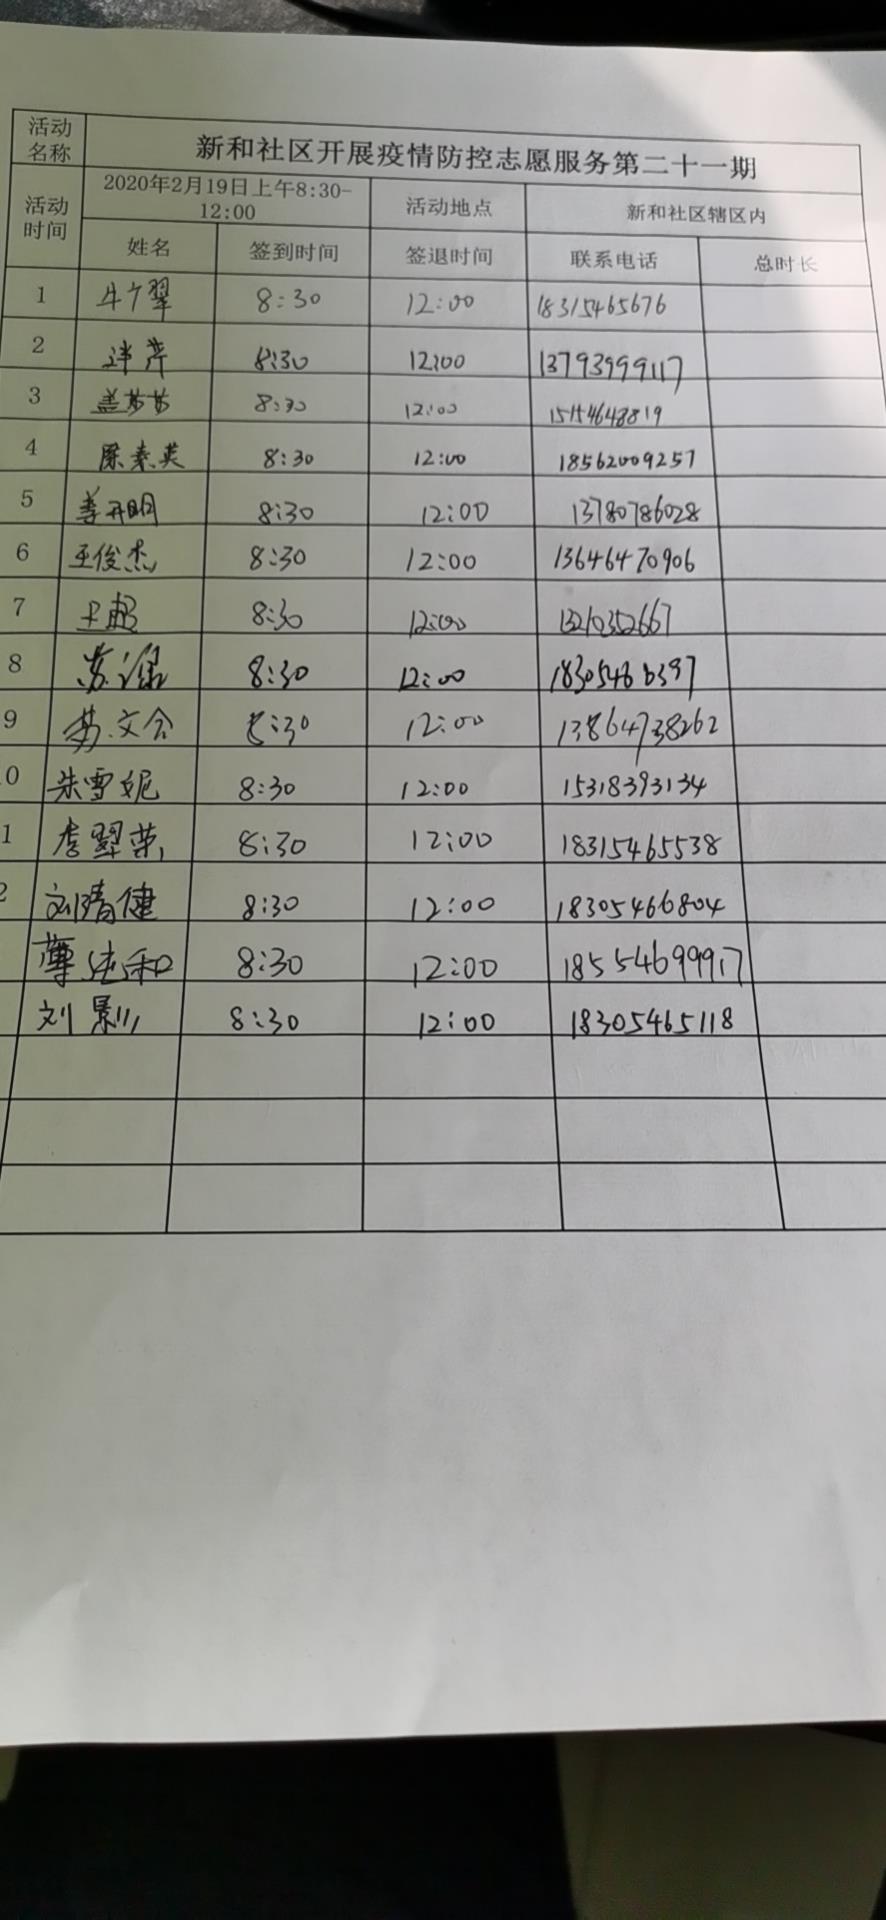 活动名称 新和社区开展疫情防控志愿服务第二十一期
活动时间 2020年2月19日上午8:30-12:00 活动地点 新和社区辖区内
姓名 签到时间 签退时间 联系电话 总时长
1 翠 8:30 12:00 18315465676
2 芹 8:30 12:00 13793999117
3 盖苗苗 8:30 12:00 15154648819
4 陈素英 8:30 12:00 18562009257
5 姜开明 8:30 12:00 13780786028
6 王俊杰 8:30 12:00 13646470906
7 王超 8:30 12:00 13210352667
8 苏 8:30 12:00
9 文会 8:30 12:00 13864738262
0 朱雪妮 8:30 12:00 15318393134
1 李翠荣 8:30 12:00 18315465538
2 刘清健 8:30 12:00 18305466804
薄纯和 8:30 12:00 18554699917
刘影 8:30 12:00 18305465118